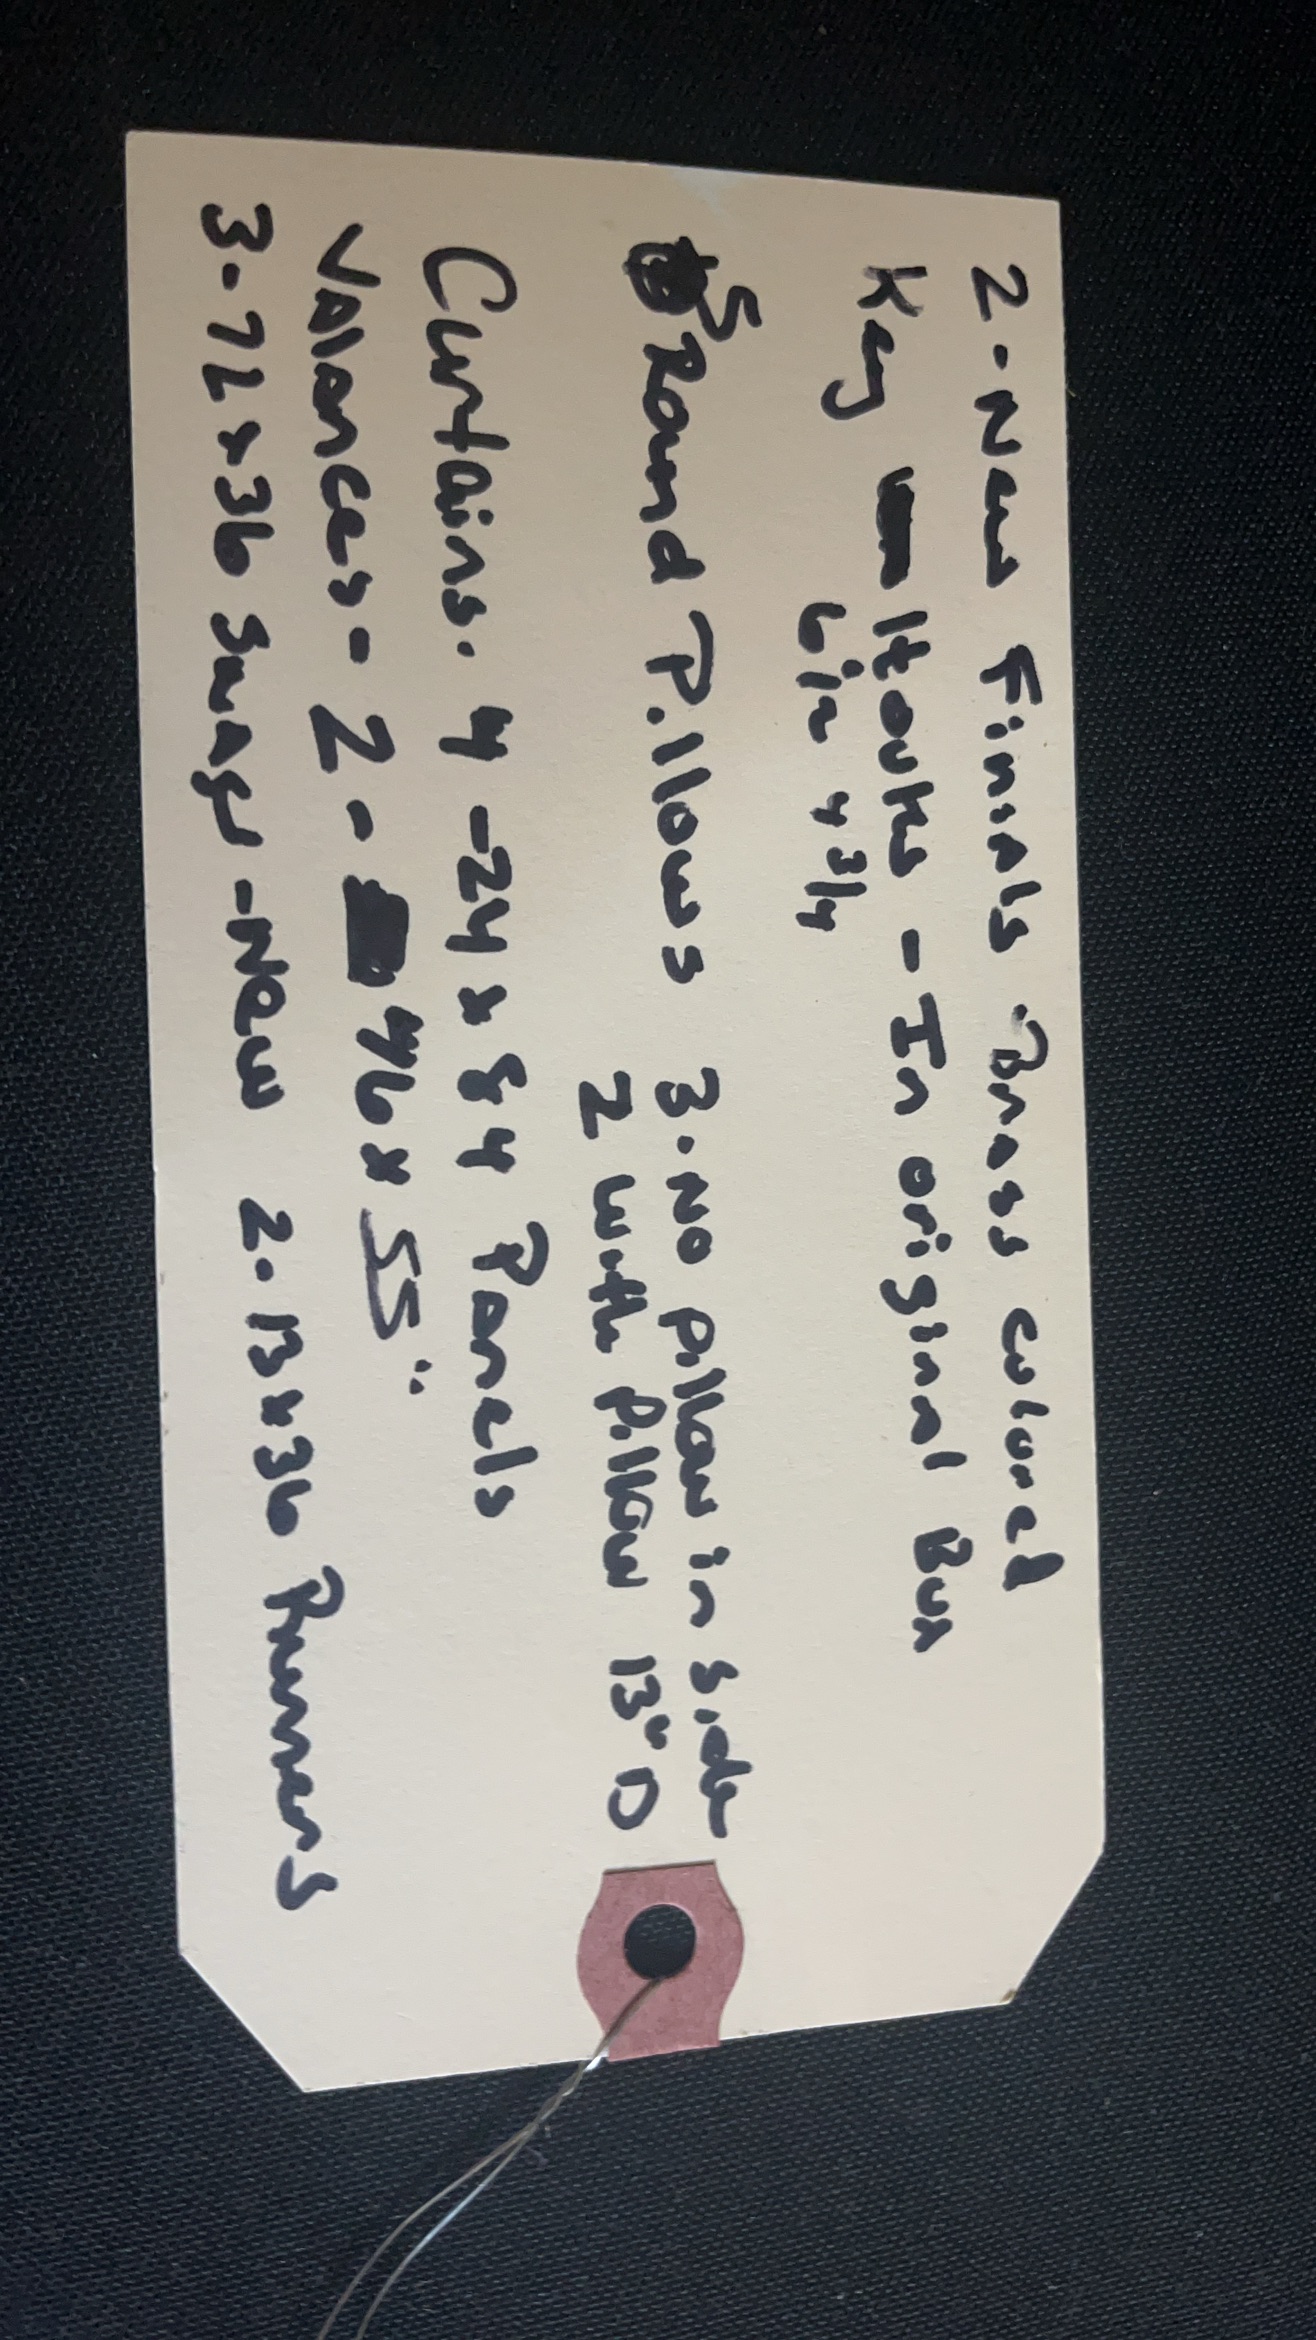 2-New Finials Brass colored
Key Hooks - In original Box
6 in x 3/4
5 Round Pillows 3. No pillow in side
2 with pillow 13" D
Curtains. 4 -24 x 84 Panels
Valances - 2 - 46 x 55"
3-72 x 36 Swags -New 2. 13 x 36 Runners